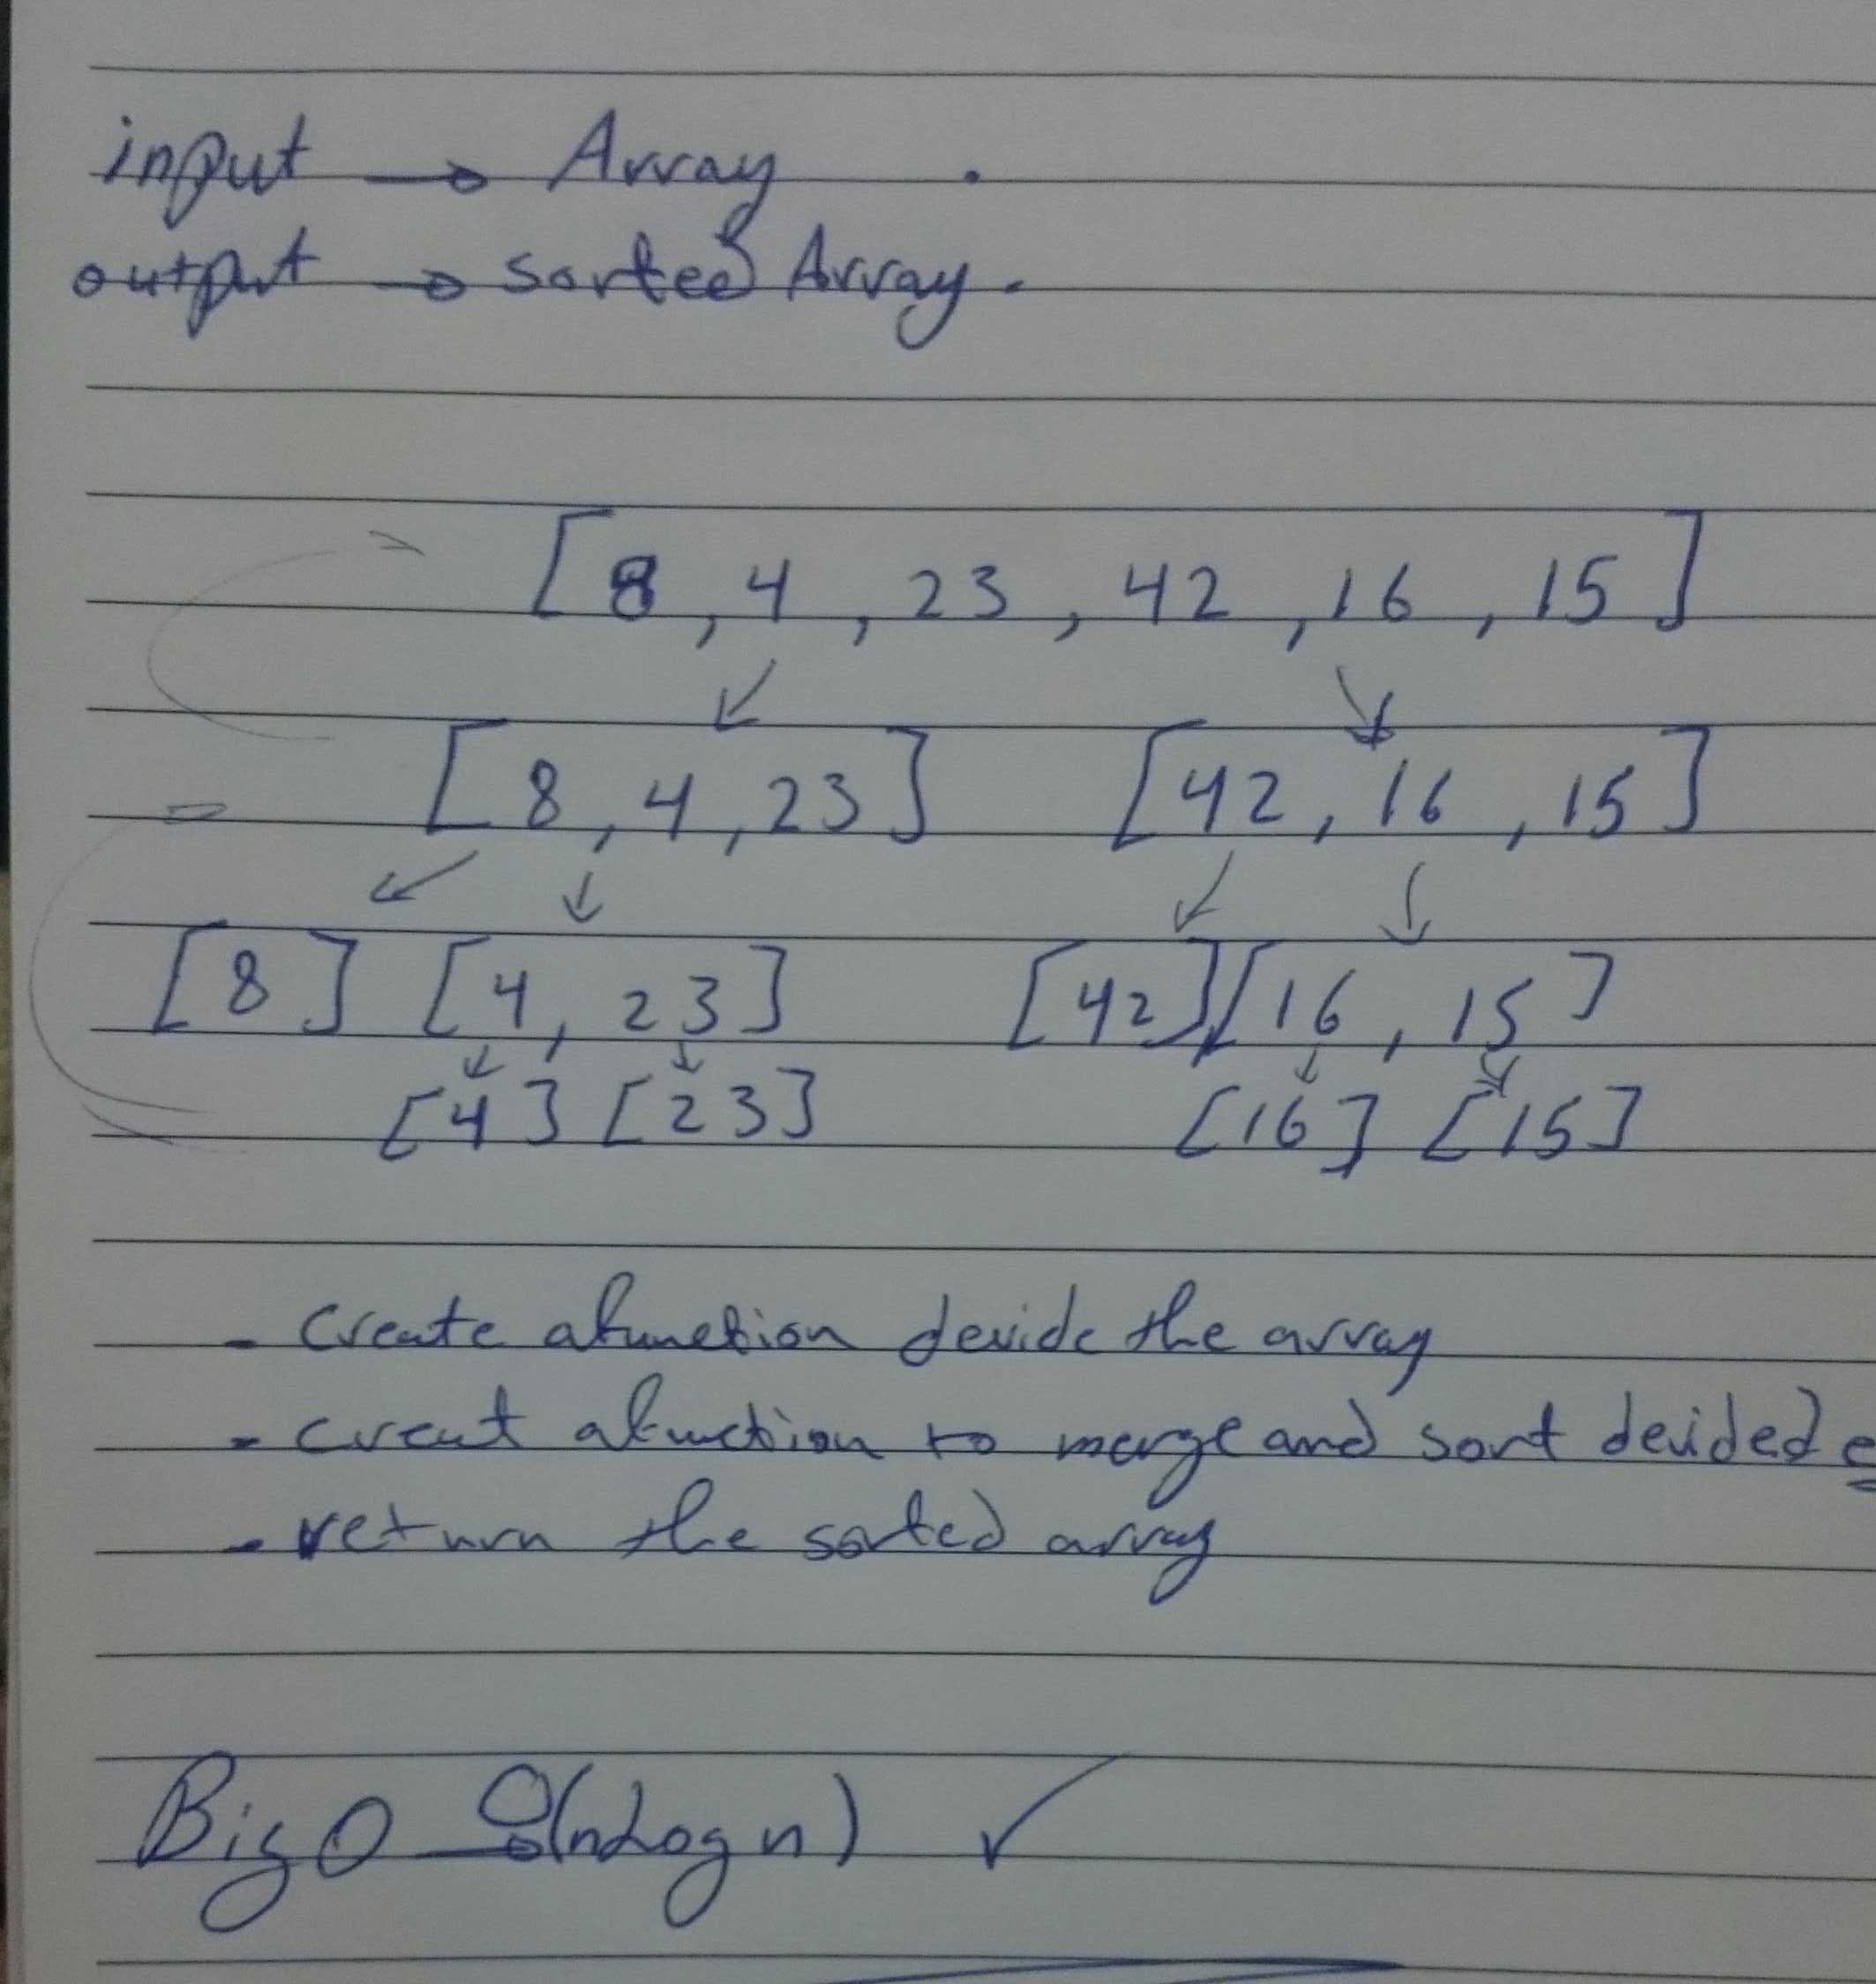 input → Array .
output → sorted Array.
[ 8 , 4 , 23 , 42 , 16 , 15 ]
[ 8 , 4 , 23 ] [ 42 , 16 , 15 ]
[ 8 ] [ 4 , 23 ] [ 42 ] [ 16 , 15 ]
[ 4 ] [ 23 ] [ 16 ] [ 15 ]
- create a function devide the array
- creat a function to merge and sort devided
- return the sorted array
Big O → O(n Log n) ✓